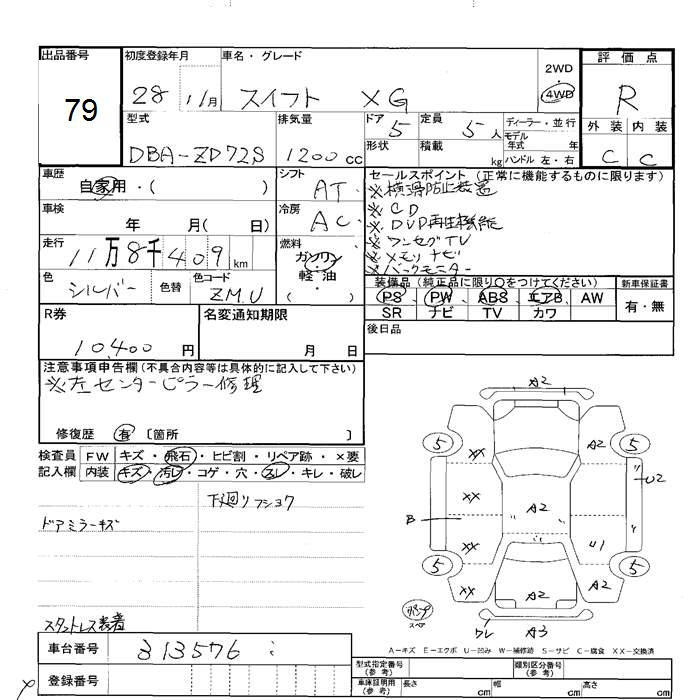 出品番号 初度登録年月 車名・グレード 評価点
79 28 11月 スイフト XG 2WD・4WD R
型式 排気量 ドア 5 定員 5人 ディーラー・並行 外装 内装
モデル年式 年
DBA-ZD72S 1200cc 形状 積載 kg ハンドル 左・右 C C
車歴 シフト セールスポイント(正常に機能するものに限ります)
自家用・( ) AT ※横滑防止装置
車検 冷房 ※CD
年 月( 日) AC ※DVD再生機能
走行 燃料 ※ワンセグTV
11万8千409km ガソリン・軽油・ ※メモリナビ
※バックモニター
色 色替 色コード 装備品(純正品に限り○をつけてください) 新車保証書
シルバー ZMU PS、PW、ABS、エアB、AW 有・無
R券 名変通知期限 SR ナビ TV カワ
10,400円 月 日 後日品
注意事項申告欄(不具合内容等は具体的に記入して下さい)
※左センターピラー修理
修復歴 有 〔箇所 〕
検査員 FW キズ・飛石・ヒビ割・リペア跡・×要
記入欄 内装 キズ・汚レ・コゲ・穴・スレ・キレ・破レ
下廻リフショク
ドアミラーキズ
A2
5 XX A2 5
XX U2
B A2
XX U1
5 XX A2 A2 5
パンク
スペア
ワレ A3
スタットレス装着
A-キズ E-エクボ U-凹み W-補修跡 S-サビ C-腐食 XX-交換済
車台番号 313576
型式指定番号(参考) 類別区分番号(参考)
登録番号
車庫証明用(参考) 長さ cm 幅 cm 高さ cm